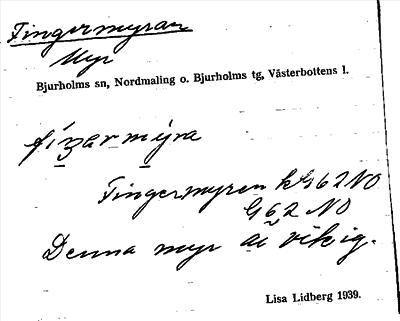 Fingermyran
Myr
Bjurholms sn, Nordmaling o. Bjurholms tg, Västerbottens l.
fíŋarmýra
Fingermyren kG62NO
G62 NO
Denna myr är vikig.
Lisa Lidberg 1939.